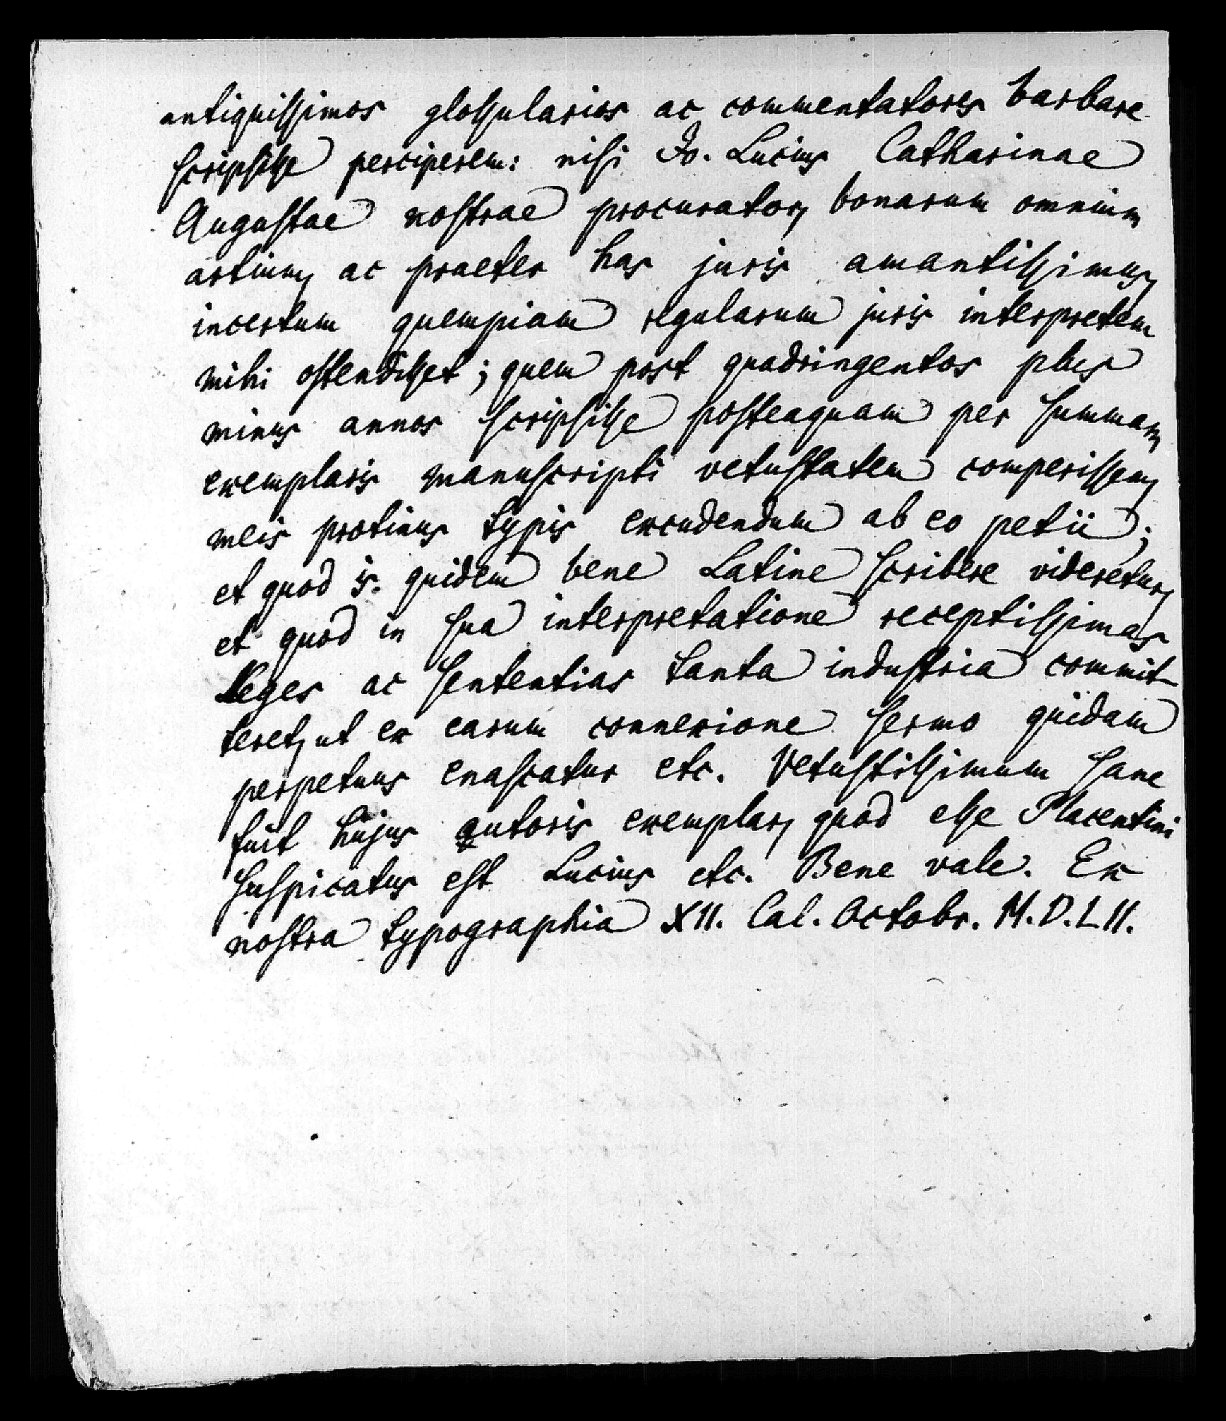 antiquissimos glossularios ac commentatores barbare
scripsisse perciperem: nisi Jo. Lucius Catharinae
Augustae nostrae procurator, bonarum omnium
artium, ac praeter has juris amantissimus,
incertum quempiam regularum juris interpretem
mihi ostendisset; quem post quadringentos plus
minus annos scripsisse posteaquam per summam
exemplaris manuscripti vetustatem comperissem,
meis protinus typis excudendum ab eo petii;
et quod is. quidem bene Latine scribere videretur,
et quod in sua interpretatione receptissimas
leges ac sententias tanta industria commit-
teret, ut ex earum connexione sermo quidam
perpetuus enascatur etc. Vetustissimum sane
fuit hujus autoris exemplar, quod esse Placentini
suspicatus est Lucius etc. Bene vale. Ex
nostra typographia XII. Cal. Octobr. M.D.LII.